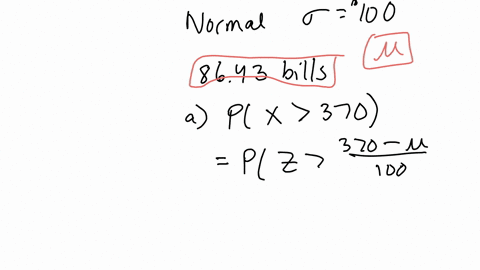 Normal σ = 100
μ
86.43 bills
a) P( X > 370)
= P( Z > 370 - μ / 100